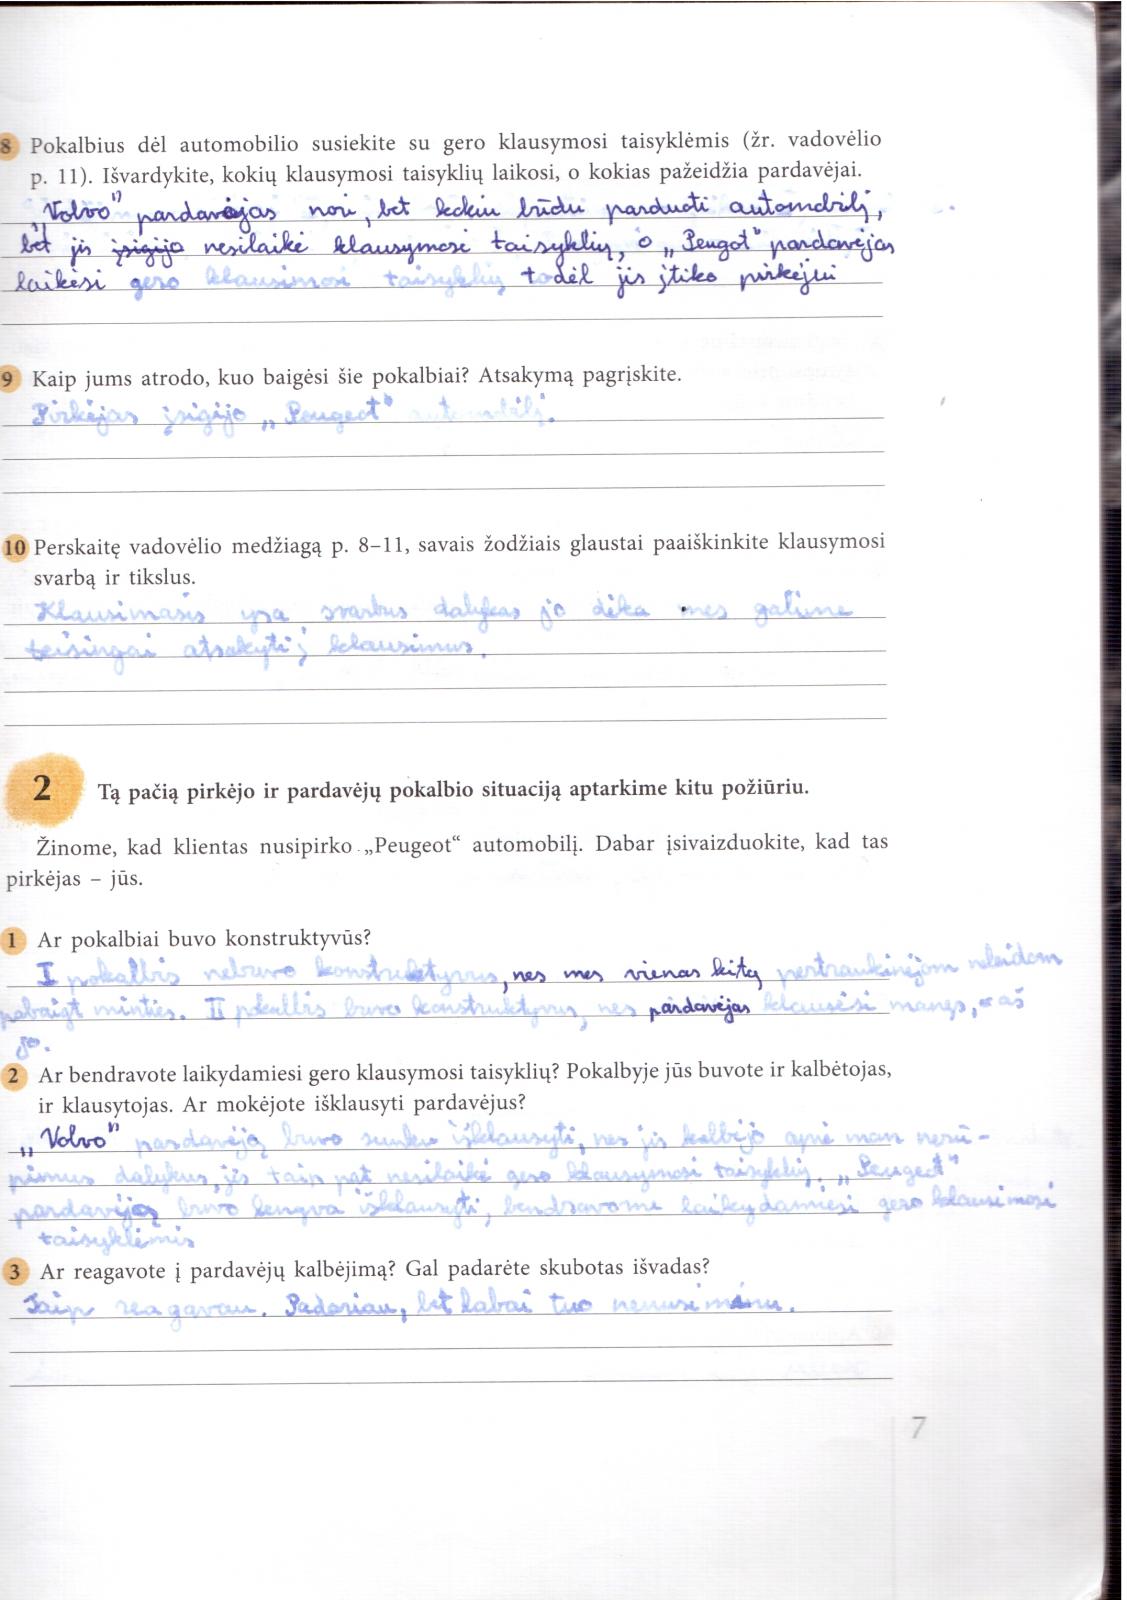 8 Pokalbius dėl automobilio susiekite su gero klausymosi taisyklėmis (žr. vadovėlio
p. 11). Išvardykite, kokių klausymosi taisyklių laikosi, o kokias pažeidžia pardavėjai.
„Volvo" pardavėjas nori, bet kokiu būdu parduoti automobilį,
bet jis įsigijo nesilaikė klausymosi taisyklių, o „Peugot" pardavėjas
laikėsi gero klausimosi taisyklių, todėl jis įtiko pirkėjui
9 Kaip jums atrodo, kuo baigėsi šie pokalbiai? Atsakymą pagrįskite.
Pirkėjas įsigijo „Peugeot" automobilį.
10 Perskaitę vadovėlio medžiagą p. 8–11, savais žodžiais glaustai paaiškinkite klausymosi
svarbą ir tikslus.
Klausimasis yra svarbus dalykas jo dėka mes galime
teisingai atsakyti į klausimus.
2 Tą pačią pirkėjo ir pardavėjų pokalbio situaciją aptarkime kitu požiūriu.
Žinome, kad klientas nusipirko „Peugeot“ automobilį. Dabar įsivaizduokite, kad tas
pirkėjas – jūs.
1 Ar pokalbiai buvo konstruktyvūs?
I pokalbis nebuvo konstruktyvus, nes mes vienas kitą pertraukinėjom neleidom
pabaigt minties. II pokalbis buvo konstruktyvus, nes pardavėjas klausėsi manęs, o aš
jo.
2 Ar bendravote laikydamiesi gero klausymosi taisyklių? Pokalbyje jūs buvote ir kalbėtojas,
ir klausytojas. Ar mokėjote išklausyti pardavėjus?
„Volvo" pardavėją buvo sunku išklausyti, nes jis kalbėjo apie man nerū-
pimus dalykus, jis taip pat nesilaikė gero klausymosi taisyklių. „Peugeot"
pardavėją buvo lengva išklausyti, bendravome laikydamiesi gero klausimosi
taisyklėmis
3 Ar reagavote į pardavėjų kalbėjimą? Gal padarėte skubotas išvadas?
Taip reagavau. Padariau, bet labai tuo nenusiminu.
7